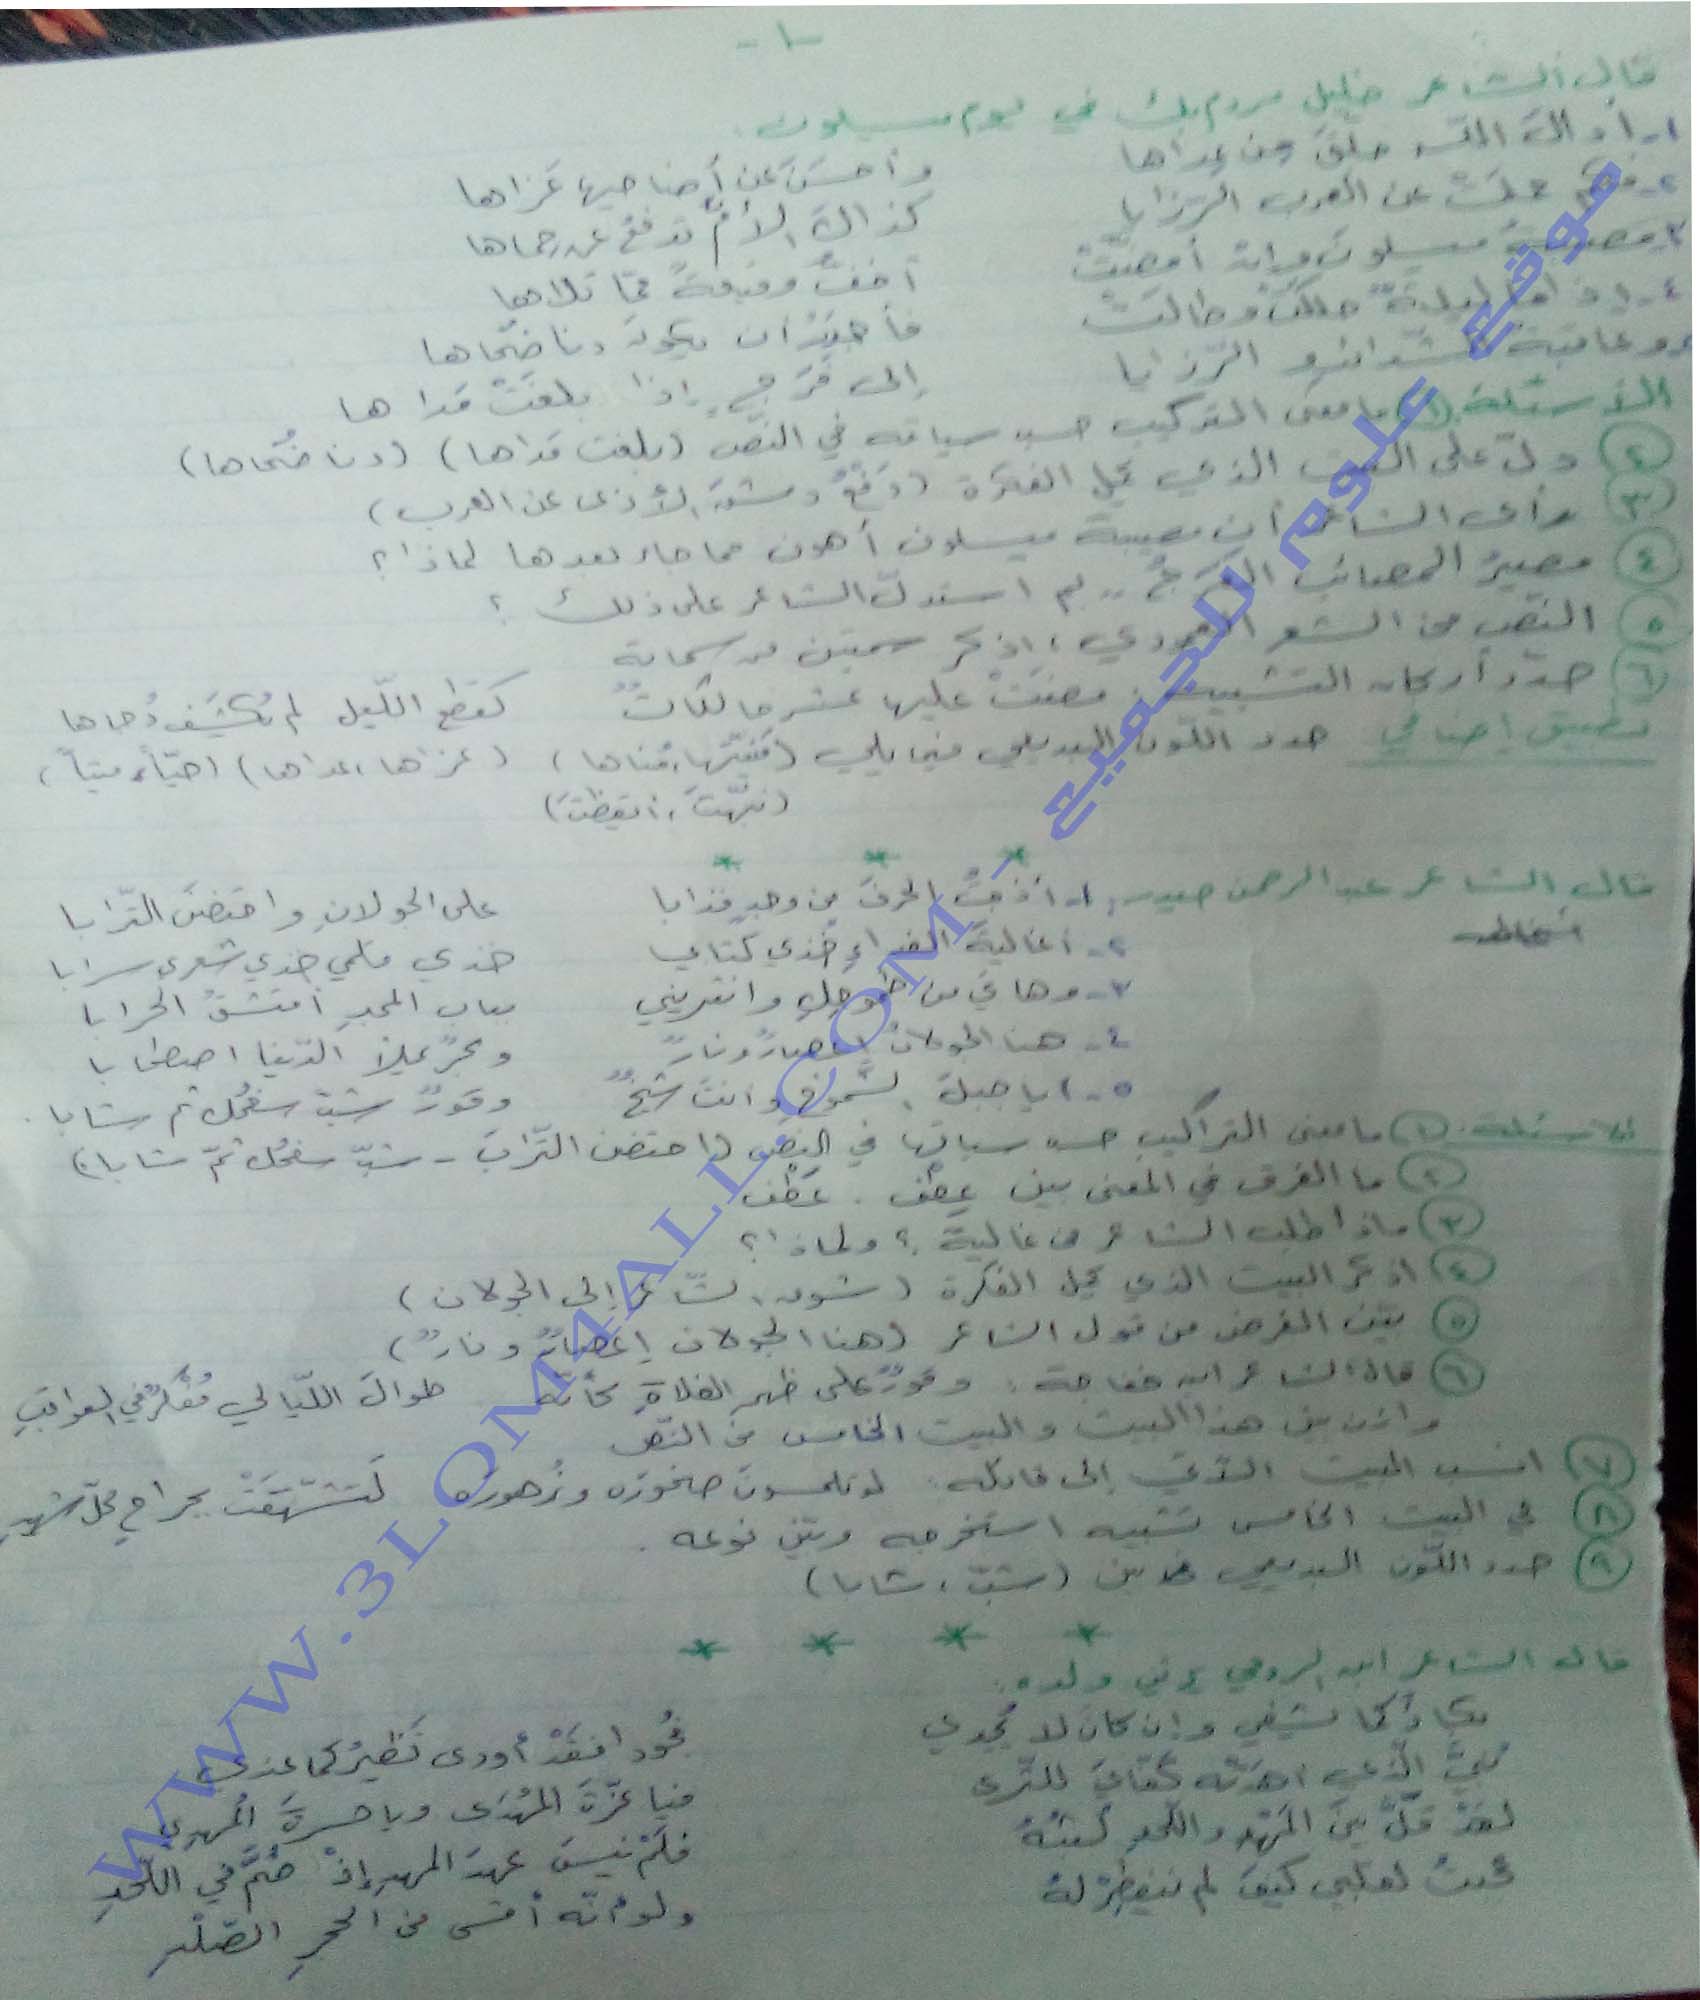 -١-
قال الشاعر خليل مردم بك في يوم ميسلون:
١- أدال الله جلّق من عداها وأحسنَ عن أضاحيها عزاها
٢- فكم حملتْ عن العرب الرزايا كذاك الأمُّ تدفعُ عن حماها
٣- مصيبةُ ميسلون وإن أمضّتْ أخفُّ وقيعةً ممّا تلاها
٤- إذا ما ليلةٌ حلكتْ وطالتْ فأحرِ أن يكونَ دنا ضحاها
٥- وعاقبة الشدائد والرّزايا إلى فرجٍ إذا بلغتْ مداها
الأسئلة: ١ ما معنى التركيب حسب سياقه في النصّ (بلغت مداها) (دنا ضُحاها)
٢ دلّ على البيت الذي يحمل الفكرة (دَفْعُ دمشقَ الأذى عن العرب)
٣ رأى الشاعر أن مصيبة ميسلون أهون مما جاء بعدها لماذا؟
٤ مصيرُ المصائب الفَرَجُ.. بم استدلّ الشاعر على ذلك؟
٥ النصّ من الشعر العمودي، اذكر سمتين من سماته
٦ حدّد أركان التشبيه: مضَتْ عليها عشر حالكاتٌ كقطع اللّيل لم يُكشَف دُجاها
تطبيق إضافي حدد اللّون البديعي فيما يلي (مَنيّتها، مُناها) (عزاها، عداها) (حيّاً، ميتاً)،
(نبّهتَ، أيقظتَ)
قال الشاعر عبد الرحمن حيدر: ١- أذبتُ الحرفَ من وجدٍ فذابا على الجولانِ واحتضنَ التّرابا
٢- أغاليةَ الفداءِ خُذي كتابي خذي قلمي خذي شعري سرابا
٣- وهاتي من طموحِكِ وانثريني ببابِ المجدِ أمتشقُ الحرابا
٤- هنا الجولانُ إعصارٌ ونارٌ وبحرٌ يملأ الدّنيا اصطخابا
٥- أيا جبلَ الشّموخِ وأنتَ شيخٌ وقورٌ شبّ سفحُك ثم شابا.
الأسئلة: ١ ما معنى التراكيب حسب سياقها في النص (احتضن التّرابَ - شبّ سفحُك ثمّ شابا؟)
٢ ما الفرق في المعنى بين عِطْف. عَطْف
٣ ماذا طلب الشاعر من غالية؟ ولماذا؟
٤ اذكر البيت الذي يحمل الفكرة (شوق الشّاعر إلى الجولان)
٥ بيّن الغرض من قول الشاعر (هنا الجولان إعصارٌ ونارٌ)
٦ قال الشاعر ابن خفاجة: وقورٌ على ظهر الفلاةِ كأنّه طوالَ اللّيالي مُفكّرٌ في العواقبِ
وازن بين هذا البيت والبيت الخامس من النّصّ
٧ انسب البيت الآتي إلى قائله: لو تلمسون صخورَه وزُهورَه لَتشهّقتْ بجراحِ كلّ شهيدِ
٨ في البيت الخامس تشبيه استخرجه وبيّن نوعه.
٩ حدد اللّون البديعي بين (شبّ، شابا)
قال الشاعر ابن الرومي يرثي ولده:
بكاؤكما يشفي وإن كان لا يُجدي فجُودا فقَدْ أودى نَظيرُكما عندي
بُنيَّ الّذي أهدَتْه كفّايَ للثّرى فيا عزّةَ المُهدَى ويا حسرةَ المُهدِي
لقدْ قلَّ بينَ المَهْدِ واللّحدِ لُبثُهُ فلَمْ ينسَ عهدَ المهدِ إذْ ضُمَّ في اللّحدِ
عجبتُ لقلبي كيفَ لم ينفطِرْ لهُ ولو أنّه أقسى من الحجرِ الصّلْدِ
موقع علوم للجميع - WWW.3LOM4ALL.COM